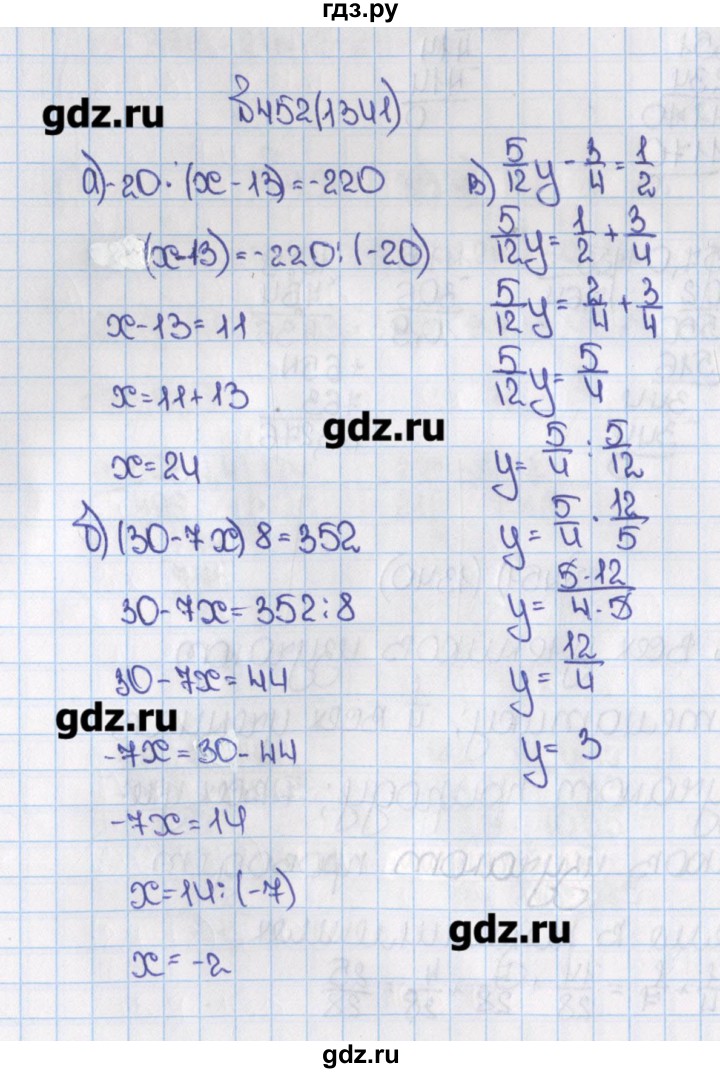 гдз.ру
№452(1341)
gdz.ru
а) -20·(x-13)=-220
(x-13)=-220:(-20)
x-13=11
x=11+13
gdz.ru
x=24
б) (30-7x) 8=352
30-7x=352:8
30-7x=44
gdz.ru
-7x=30-44
-7x=14
x=14:(-7)
x=-2
в) 5/12 y - 3/4 = 1/2
5/12 y = 1/2 + 3/4
5/12 y = 2/4 + 3/4
5/12 y = 5/4
y = 5/4 : 5/12
y = 5/4 · 12/5
y = 5·12/4·5
y = 12/4
y = 3
gdz.ru
gdz.ru